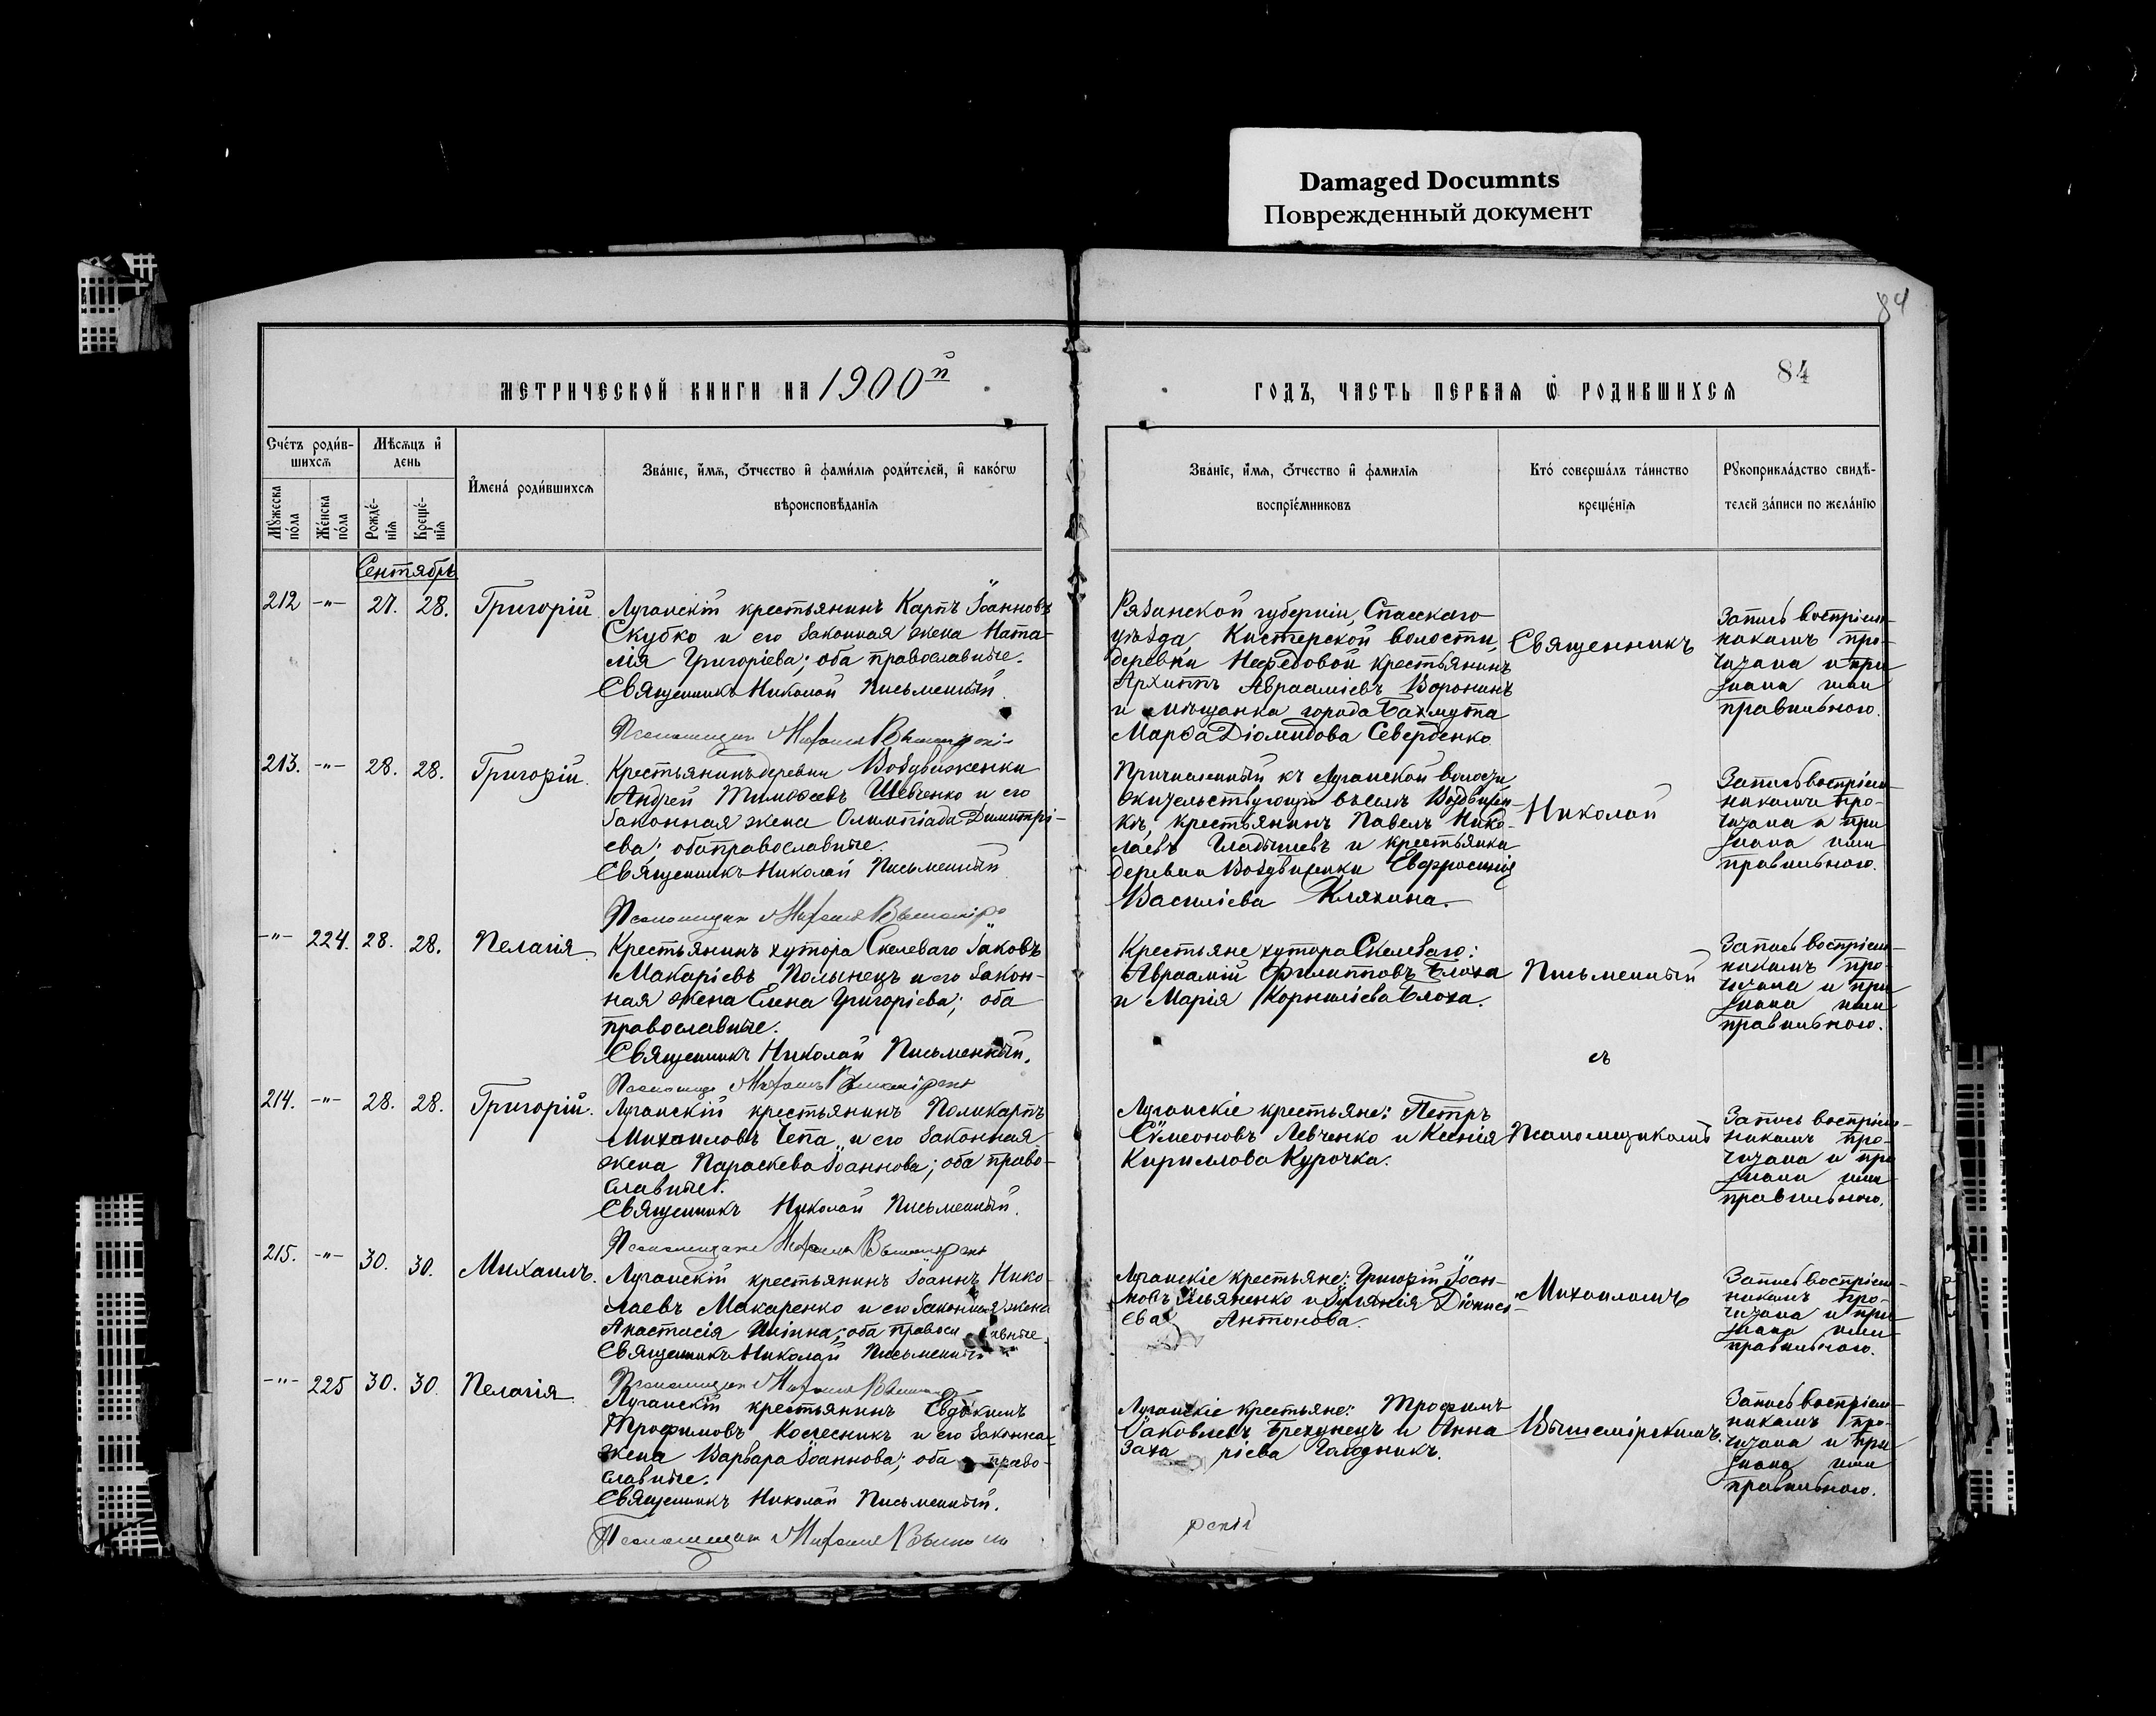 Damaged Documnts
Поврежденный документ
84
84
МЕТРИЧЕСКОЙ КНИГИ НА 1900й
ГОДЪ, ЧАСТЬ ПЕРВАЯ Ѡ РОДИВШИХСЯ
Счетъ родив-
шихся
Мѣсяцъ и
день
Мужеска
пола
Женска
пола
Рожде-
нія
Креще-
нія
Имена родившихся
Званіе, имя, отчество и фамилія родителей, и какогѡ
вѣроисповѣданія
Званіе, имя, отчество и фамилія
воспріемниковъ
Кто совершалъ таинство
крещенія
Рукоприкладство свидѣ-
телей записи по желанію
Сентябрь
212 -"- 27. 28. Григорій
Луганскій крестьянинъ Карпъ Іоанновъ
Скубко и его законная жена Ната-
лія Григоріева; оба православные.
Священникъ Николай Письменный.
Псаломщик Михаил
Рязанской губерніи, Спасскаго
уѣзда, Кистерской волости,
деревни Нефедовой крестьянинъ
Архиппъ Авраамiевъ Воронинъ
и мѣщанка города Бахмута
Марѳа Діомидова Севербенко.
Священникъ
Запись воспріем-
никамъ про-
читана и при
знана ими
правильною.
213. -"- 28. 28. Григорій.
Крестьянинъ деревни Воздвиженки
Андрей Тимоѳеевъ Шевченко и его
законная жена Олимпіада Димитрі-
ева; оба православные.
Священникъ Николай Письменный
Псаломщик Михаил
Причисленный къ Луганской волости
жительствующій въ селѣ Воздвижен-
кѣ, крестьянинъ Павелъ Нико-
лаевъ Гладышевъ и крестьянка
деревни Воздвиженки Евфросинія
Василіева Кляхина.
Николай
Запись воспріем-
никами про-
читана и при
знана ими
правильною.
-"- 224. 28. 28. Пелагія.
Крестьянинъ хутора Скелеваго Іаковъ
Макаріевъ Полынецъ и его закон-
ная жена Елена Григоріева; оба
православные.
Священникъ Николай Письменный.
Псаломщик Михаил
Крестьяне хутора Скелеваго:
Авраамій Филипповъ Блоха
и Марія Корниліева Блоха.
Письменный
Запись воспріем-
никамъ про-
читана и при
знана ими
правильною.
съ
214. -"- 28. 28. Григорій.
Луганскій крестьянинъ Поликарпъ
Михаиловъ Чепа, и его законная
жена Параскева Іоаннова; оба право-
славные.
Священникъ Николай Письменный.
Псаломщик Михаил
Луганскіе крестьяне: Петръ
Сѵмеоновъ Левченко и Ксенія
Кириллова Курочка.
Псаломщикомъ
Запись воспріем-
никамъ про-
читана и при
знана ими
правильною.
215. -"- 30. 30. Михаилъ.
Луганскій крестьянинъ Іоаннъ Нико-
лаевъ Макаренко и его законная жена
Анастасія Иліина; оба правосл авные.
Священникъ Николай Письменный
Псаломщик Михаил
Луганскіе крестьяне: Григорій Іоан-
новъ Ульяненко и Іуліанія Діонисі-
ева Антонова.
Михаиломъ
Запись воспріем-
никамъ про-
читана и при
знана ими
правильною.
-"- 225 30. 30. Пелагія.
Луганскій крестьянинъ Евдокимъ
Трофимовъ Колесникъ и его законная
жена Варвара Іоаннова; оба право-
славные.
Священникъ Николай Письменный.
Псаломщик Михаил
Луганскіе крестьяне: Трофимъ
Іаковлевъ Брехунецъ и Анна
Заха ріева Голодникъ.
Вышемірскимъ.
Запись воспріем-
никамъ про-
читана и при
знана ими
правильною.
рскій